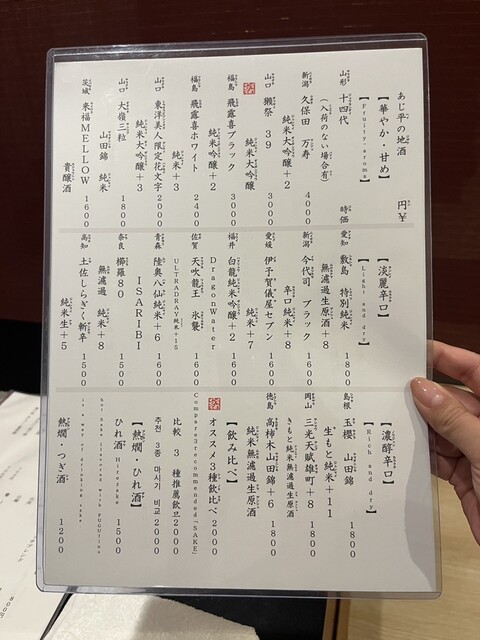 あじ平の地酒
円￥
【華やか・甘め】
【Fruity・aroma】
山形 十四代
(入荷のない場合有)
時価
新潟 久保田 万寿
純米大吟醸+2
4000
山口 獺祭 39
純米大吟醸
3000
福島 飛露喜ブラック
純米吟醸+2
3000
福島 飛露喜ホワイト
純米+3
2400
山口 東洋美人限定花文字
純米大吟醸+3
2000
山口 大嶺三粒
山田錦 純米
1800
茨城 来福MELLOW
貴醸酒
1600
【淡麗辛口】
【Light and dry】
愛知 敷島 特別純米
無濾過生原酒+8
1800
新潟 今代司 ブラック
辛口純米+8
1600
愛媛 伊予賀儀屋セブン
純米+7
1600
福井 白龍純米吟醸+2
DragonWater
1600
佐賀 天吹龍王 氷襲
ULTRADRAY純米+15
1600
青森 陸奥八仙純米+6
ISARIBI
1600
奈良 櫛羅80
無濾過 純米+8
1500
高知 土佐しらぎく斬辛
純米生+5
1500
【濃醇辛口】
【Rich and dry】
島根 玉櫻 山田錦
生もと純米+11
1800
岡山 三光天賦雄町+8
きもと純米無濾過生原酒
1800
徳島 高柿木山田錦+6
純米無濾過生原酒
1800
【飲み比べ】
オススメ3種飲比べ 2000
Compare3recommended「SAKE」
比較 3 種推薦飲品 2000
추천 3종 마시기 비교 2000
【熱燗・ひれ酒】
ひれ酒 Hirezake 1500
hot Sake finish with FUGUfins
熱燗・つぎ酒 1200